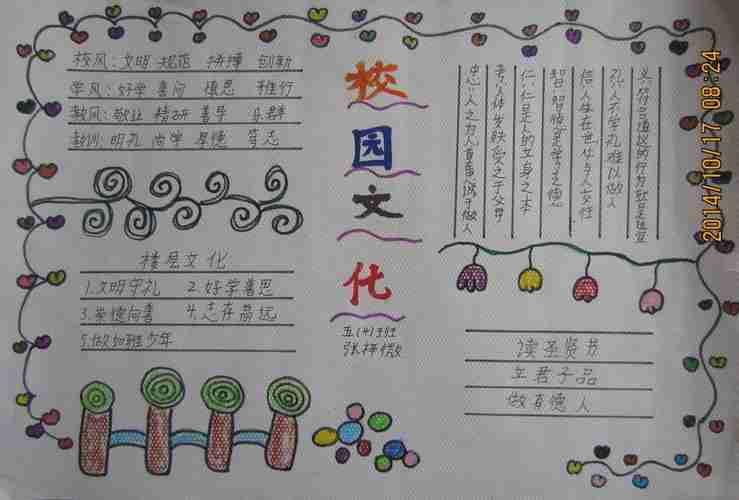 校风：文明 规范 拼搏 创新
学风：好学 善问 慎思 推行
教风：敬业 精研 善导 乐群
校训：明礼 尚学 厚德 笃志
楼层文化
1.文明守礼 2.好学善思
3.崇德向善 4.志存高远
5.做如雅少年
校园文化
五(4)班
义：符合道
礼：人不学礼难以做人
信：人
智：智慧
仁：仁是人的立身之本
孝：身体发肤受之于父母
忠：人之为人首
读圣贤书
立君子品
做有德人
2014/10/17 08:24